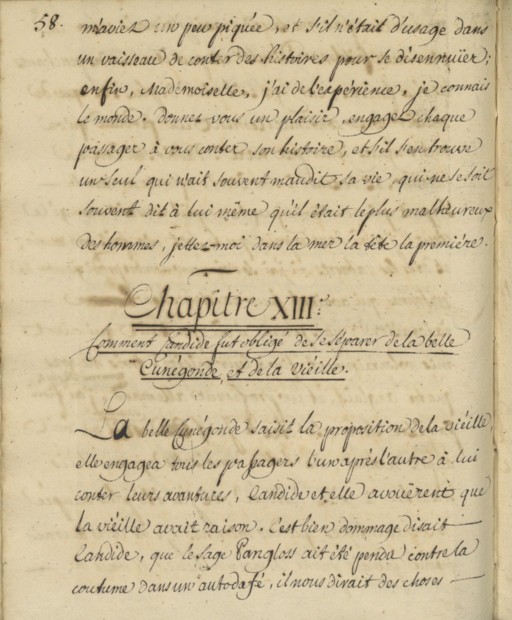 58.
m'aviez un peu piquée, et s'il n'était d'usage dans
un vaisseau de conter des histoires pour se désennuier;
enfin, Mademoiselle, j'ai de l'expérience, je connais
le monde. donnez vous un plaisir, engagez chaque
passager à vous conter son histoire, et s'il s'en trouve
un seul qui n'ait souvent maudit sa vie, qui ne se soit
souvent dit à lui même qu'il était le plus malheureux
des hommes, jettez-moi dans la mer la tête la première.
Chapitre XIII:
Comment Candide fut obligé de se séparer de la belle
Cunégonde, et de la vieille.
La belle Cunégonde saisit la proposition de la vieille,
elle engagea tous les passagers l'un après l'autre à lui
conter leurs avantures, Candide et elle avouèrent que
la vieille avait raison. C'est bien dommage disait
Candide, que le sage Pangloss ait été pendu contre la
coutume dans un autodafé, il nous dirait des choses